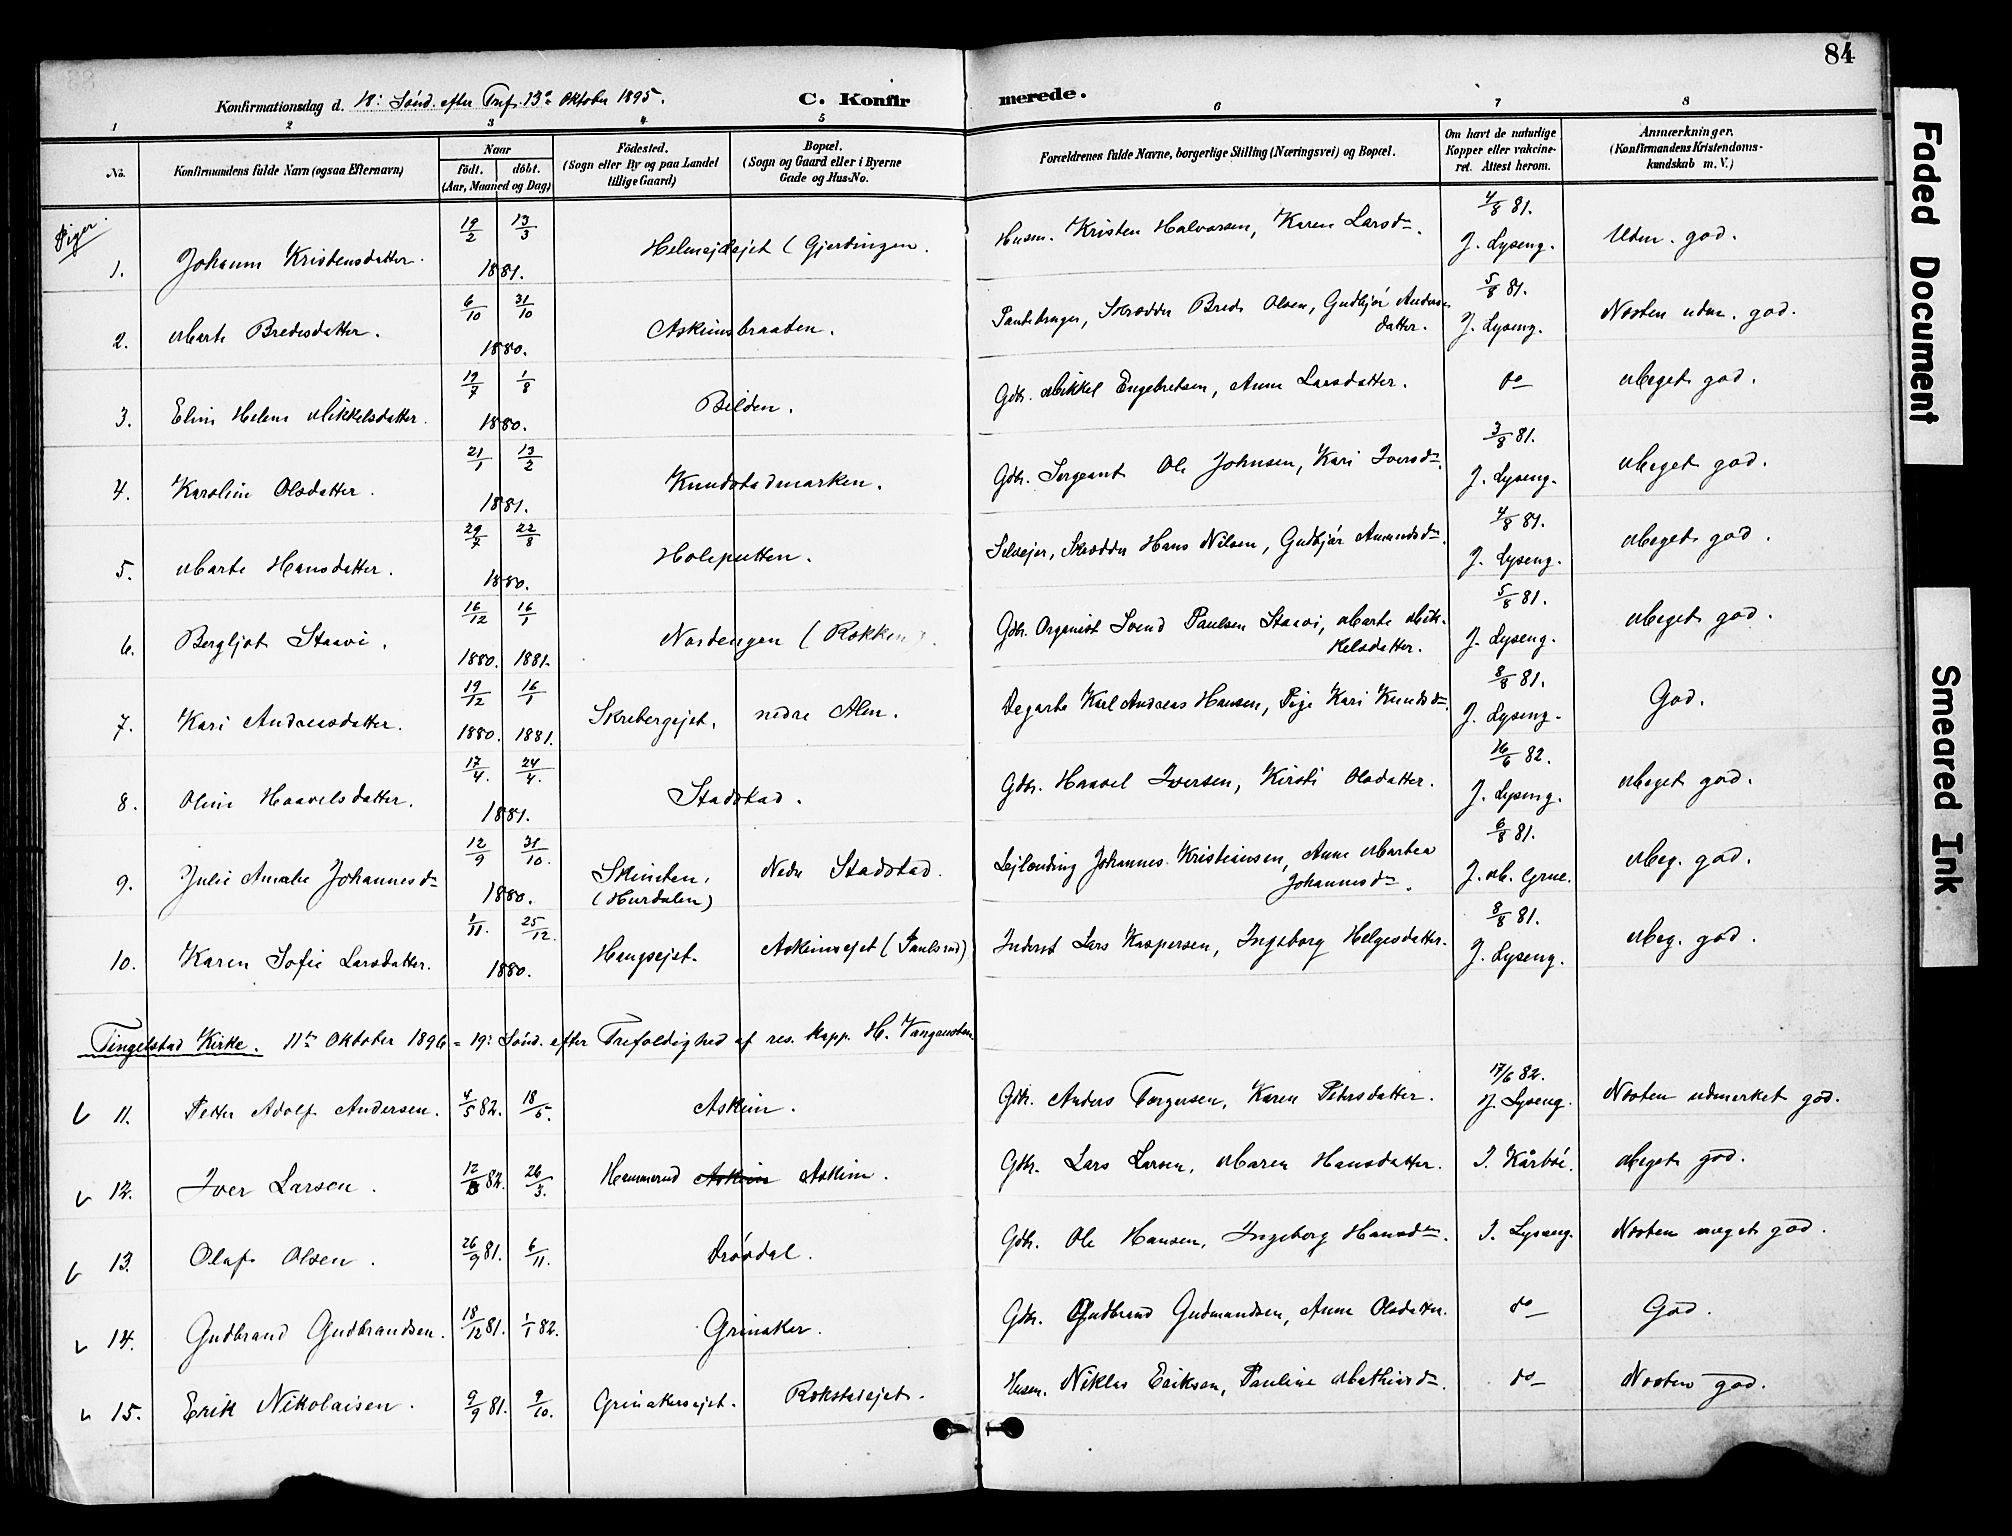 84
Konfirmationsdag d. 18: Sönd. efter Tref. 13de Oktober 1895.
C. Konfirmerede.
1 2 3 4 5 6 7 8
No.
Konfirmandens fulde Navn (ogsaa Efternavn)
Naar
födt. döbt.
(Aar, Maaned og Dag)
Födested.
(Sogn eller By og paa Landet
tillige Gaard)
Bopæl.
(Sogn og Gaard eller i Byerne
Gade og Hus-No.
Forældrenes fulde Navne, borgerlige Stilling (Næringsvei) og Bopæl.
Om havt de naturlige
Kopper eller vakcine-
ret. Attest herom.
Anmærkninger.
(Konfirmandens Kristendoms-
kundskab m. V.)
Piger
1. Johanne Kristensdatter. 19/2 13/3 1881. (Gjerdingen. Husm. Kristen Halvorsen, Karen Larsdr. 4/8 81. J. Lyseng. Udm. god.
2. Marte Bredesdatter. 6/10 31/10 1880. Askimsbraaten. Skrædder Brede Olsen, Gudbjör Andersdatter. 5/8 81. J. Lyseng. Næsten udm. god.
3. Eline Helene Mikkelsdatter. 19/7 1/8 1880. Bilden. Gdbr. Mikkel Engebretsen, Anne Larsdatter. do Meget god.
4. Karoline Olsdatter. 21/1 13/2 1881. Knudstadmarken. Gdbr. Sergeant Ole Johnsen, Kari Iversdr. 3/8 81. J. Lyseng. Meget god.
5. Marte Hansdatter. 29/7 22/8 1880. Holeputten. Selveier, Skrædder Hans Nilsen, Gudbjör Amundsdr. 4/8 81. J. Lyseng. Meget god.
6. Bergljot Staavi. 16/12 1880. 16/1 1881. Nordengen (Rokken). Gdbr. Organist Svend Paulsen Staavi, Marte Mikkelsdatter. 5/8 81. J. Lyseng. Meget god.
7. Kari Andreasdatter. 19/12 1880. 16/1 1881. Skrebergejet. nedre Alm. Karl Andreas Hansen, Pige Kari Knudsdr. 8/8 81. J. Lyseng. God.
8. Oline Haavelsdatter. 17/4. 24/4. 1881. Stadstad. Gdbr. Haavel Iversen, Kirsti Olsdatter. 16/6 82. J. Lyseng. Meget god.
9. Julie Amalie Johannesdr 12/9 31/10. 1880. (Hurdalen) Nedre Stadstad. Lejlænding Johannes Kristiansen, Anne Martea Johannesdr. 6/8 81. J. M. Grue. Meg. god.
10. Karen Sofie Larsdatter. 1/11. 25/12. 1880. Haugsejet. Askimsejet (Paulsrud) Inderst Lars Kaspersen, Ingeborg Helgesdatter. 8/8 81. J. Lyseng. Meg. god.
Tingelstad Kirke. 11te Oktober 1896 = 19: Sönd. efter Trefoldighed af res. kapp. H. Vangensten
11. Petter Adolf Andersen. 4/5 82. 18/5. Askim. Gdbr. Anders Torgersen, Karen Petersdatter. 17/6 82. J. Lyseng. Næsten udmerket god.
12. Iver Larsen. 12/3 82. 26/3. Hammerud Askim Askim. Gdbr. Lars Larsen, Maren Hansdatter. I. Kårbö. Meget god.
13. Olaf Olsen. 26/9 81. 6/11. Dröodal. Gdbr. Ole Hansen, Ingeborg Hansdr. I. Lyseng. Næsten meget god.
14. Gudbrand Gudbrandsen. 18/12 81. 1/1 82. Grinaker. Gdbr. Gudbrand Gudmundsen, Anne Olsdatter. do God.
15. Erik Nikolaisen. 9/9 81. 9/10. Grinakersejet. Rokstadejet. Husm. Niklas Eriksen, Pauline Mathiasdr. do Næsten god.
Faded Document
Smeared Ink.